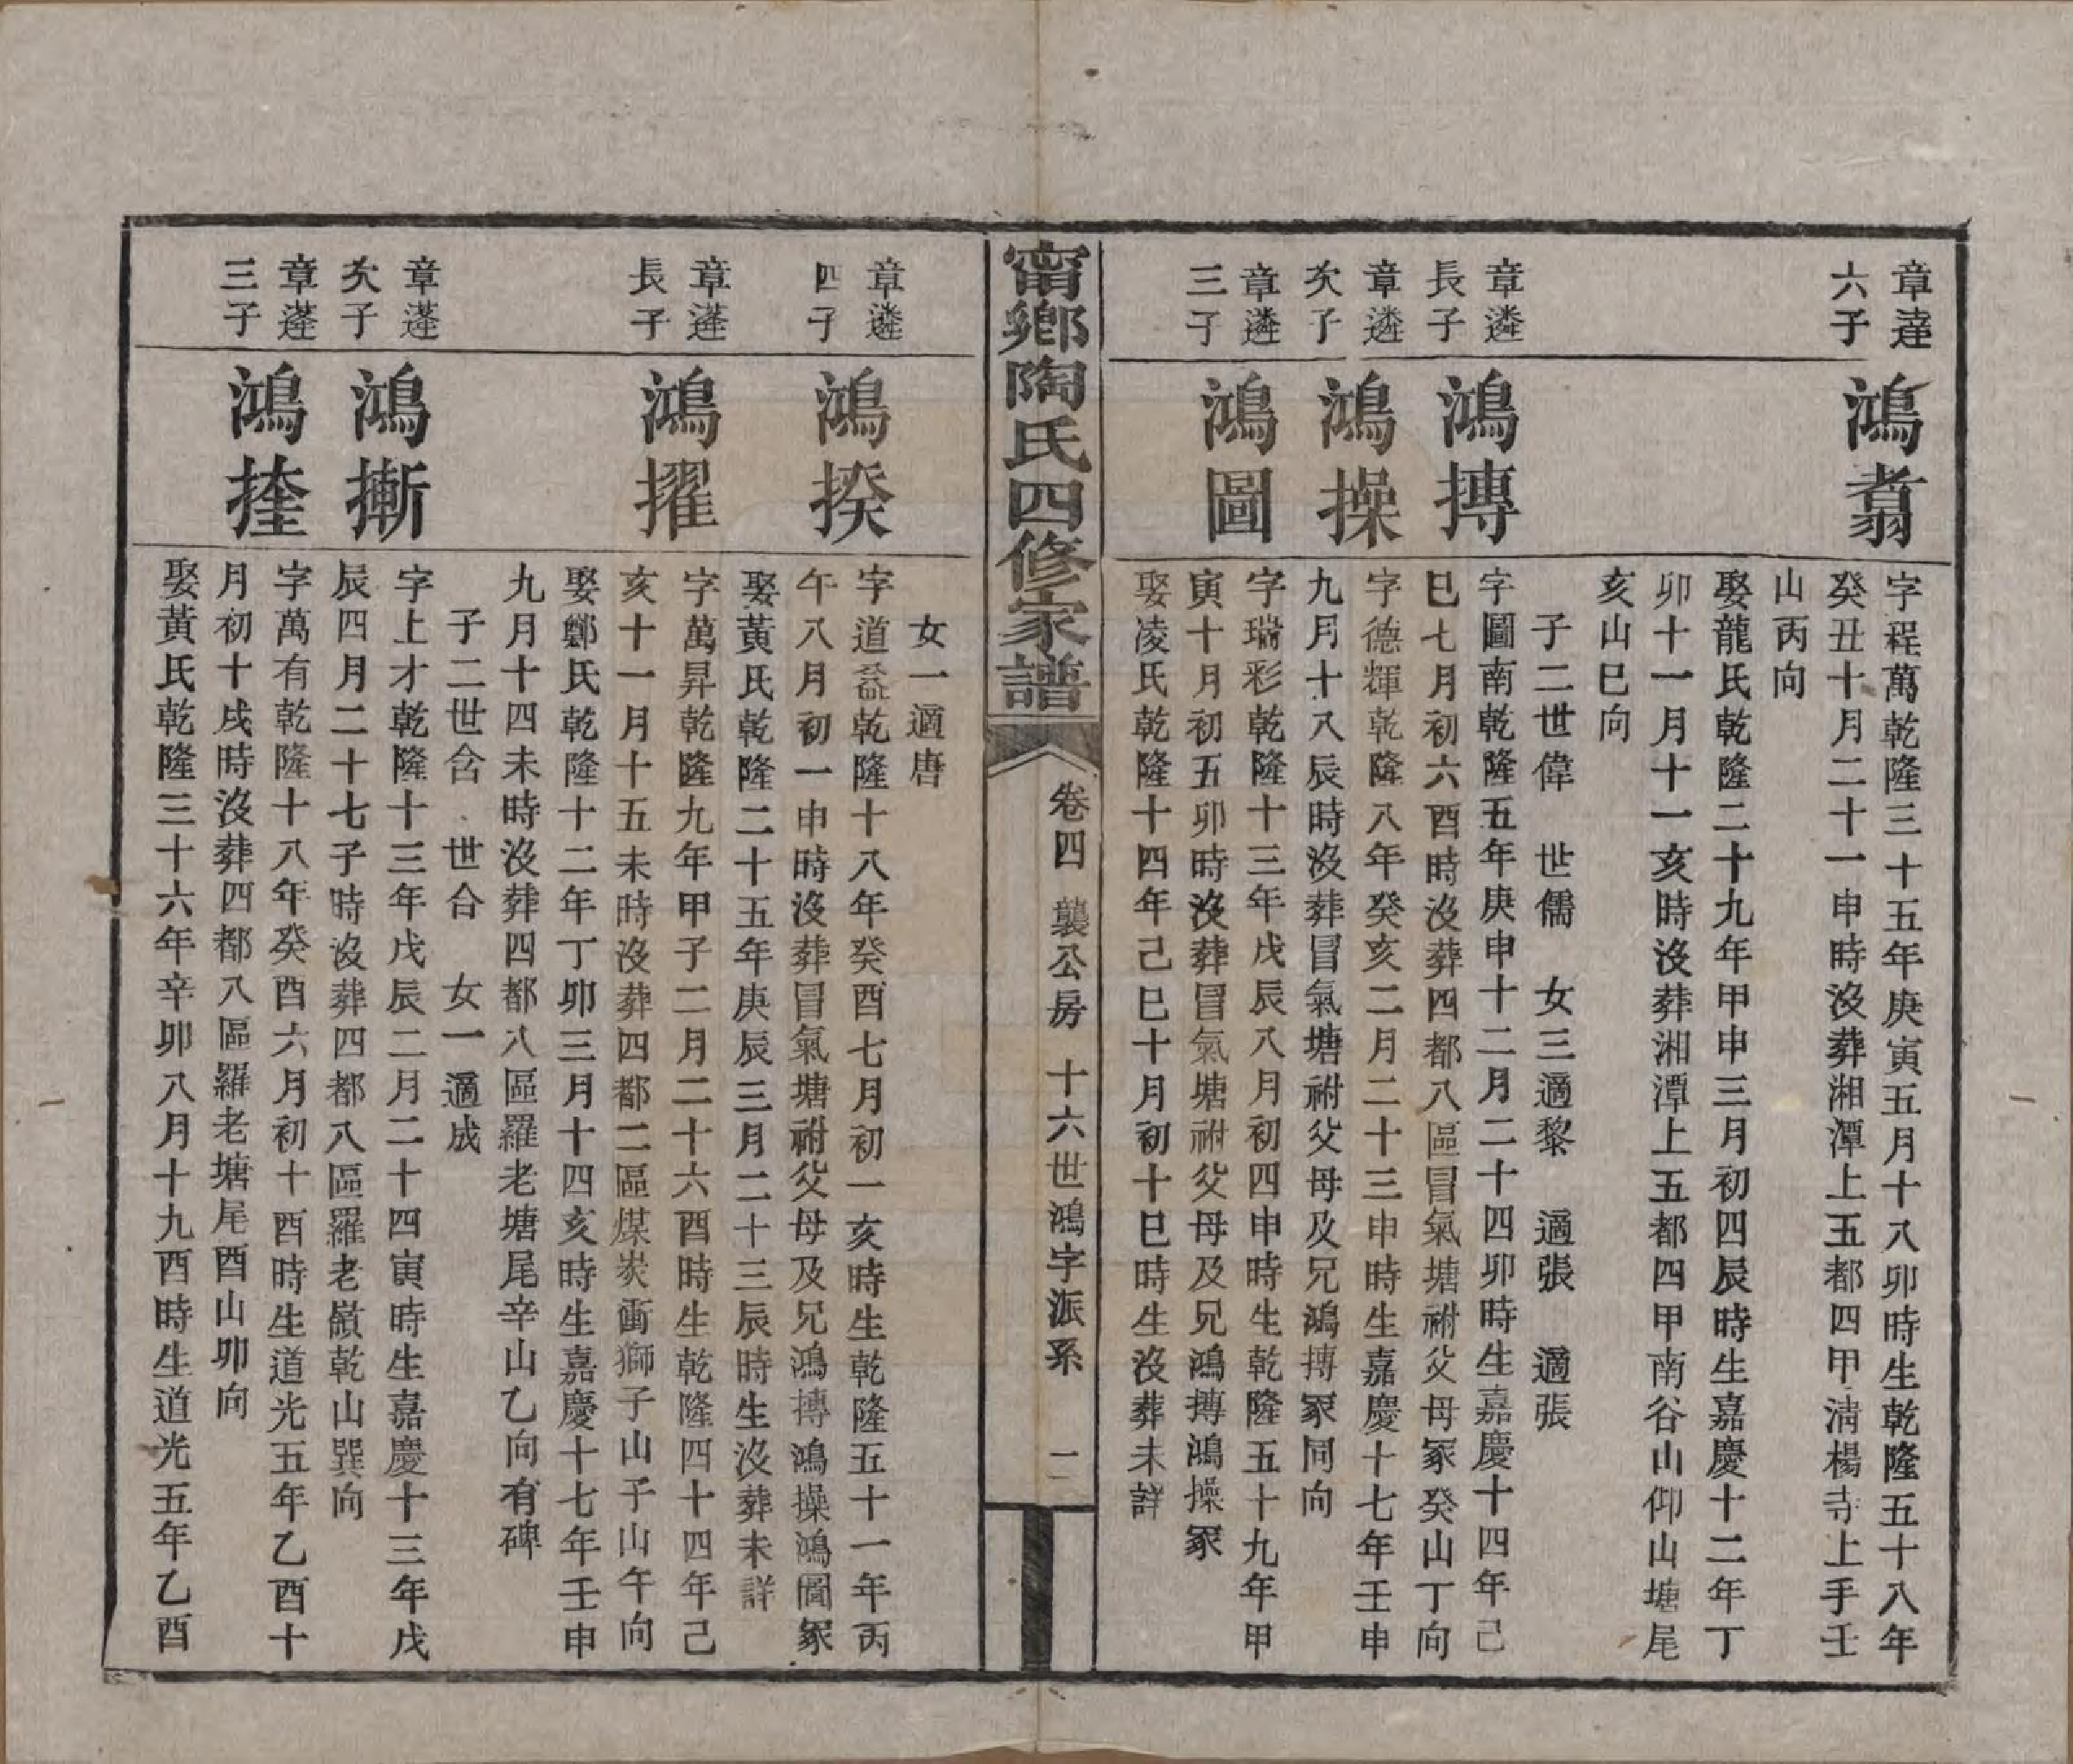 章達
六子
鴻翥
字程萬乾隆三十五年庚寅五月十八卯時生乾隆五十八年
癸丑十月二十一申時沒葬湘潭上五都四甲淸楊寺上手壬
山丙向
娶龍氏乾隆二十九年甲申三月初四辰時生嘉慶十二年丁
卯十一月十一亥時沒葬湘潭上五都四甲南谷山仰山塘尾
亥山巳向
子二世偉 世儒 女三適黎 適張 適張
章遴
長子
鴻摶
字圖南乾隆五年庚申十二月二十四卯時生嘉慶十四年己
巳七月初六酉時沒葬四都八區冒氣塘祔父母冢癸山丁向
章遴
次子
鴻操
字德輝乾隆八年癸亥二月二十三申時生嘉慶十七年壬申
九月十八辰時沒葬冒氣塘祔父母及兄鴻摶冢同向
章遴
三子
鴻圖
字瑞彩乾隆十三年戊辰八月初四申時生乾隆五十九年甲
寅十月初五卯時沒葬冒氣塘祔父母及兄鴻摶鴻操冢
娶凌氏乾隆十四年己巳十月初十巳時生沒葬未詳
甯鄉陶氏四修家譜
卷四 襲公房 十六世鴻字派系 二
女一適唐
章遴
四子
鴻揆
字道益乾隆十八年癸酉七月初一亥時生乾隆五十一年丙
午八月初一申時沒葬冒氣塘祔父母及兄鴻摶鴻操鴻圖冢
娶黃氏乾隆二十五年庚辰三月二十三辰時生沒葬未詳
章蓬
長子
鴻擢
字萬昇乾隆九年甲子二月二十六酉時生乾隆四十四年己
亥十一月十五未時沒葬四都二區煤炭衝獅子山子山午向
娶鄭氏乾隆十二年丁卯三月十四亥時生嘉慶十七年壬申
九月十四未時沒葬四都八區羅老塘尾辛山乙向有碑
子二世含 世合 女一適成
章蓬
次子
鴻摲
字上才乾隆十三年戊辰二月二十四寅時生嘉慶十三年戊
辰四月二十七子時沒葬四都八區羅老嶺乾山巽向
章蓬
三子
鴻摌
字萬有乾隆十八年癸酉六月初十酉時生道光五年乙酉十
月初十戌時沒葬四都八區羅老塘尾酉山卯向
娶黃氏乾隆三十六年辛卯八月十九酉時生道光五年乙酉